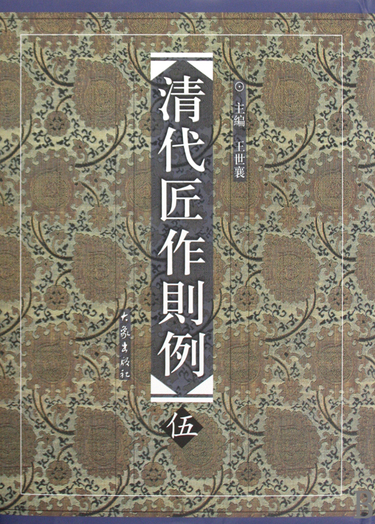 ⊙ 主编 王世襄
清代匠作則例
伍
大象出版社